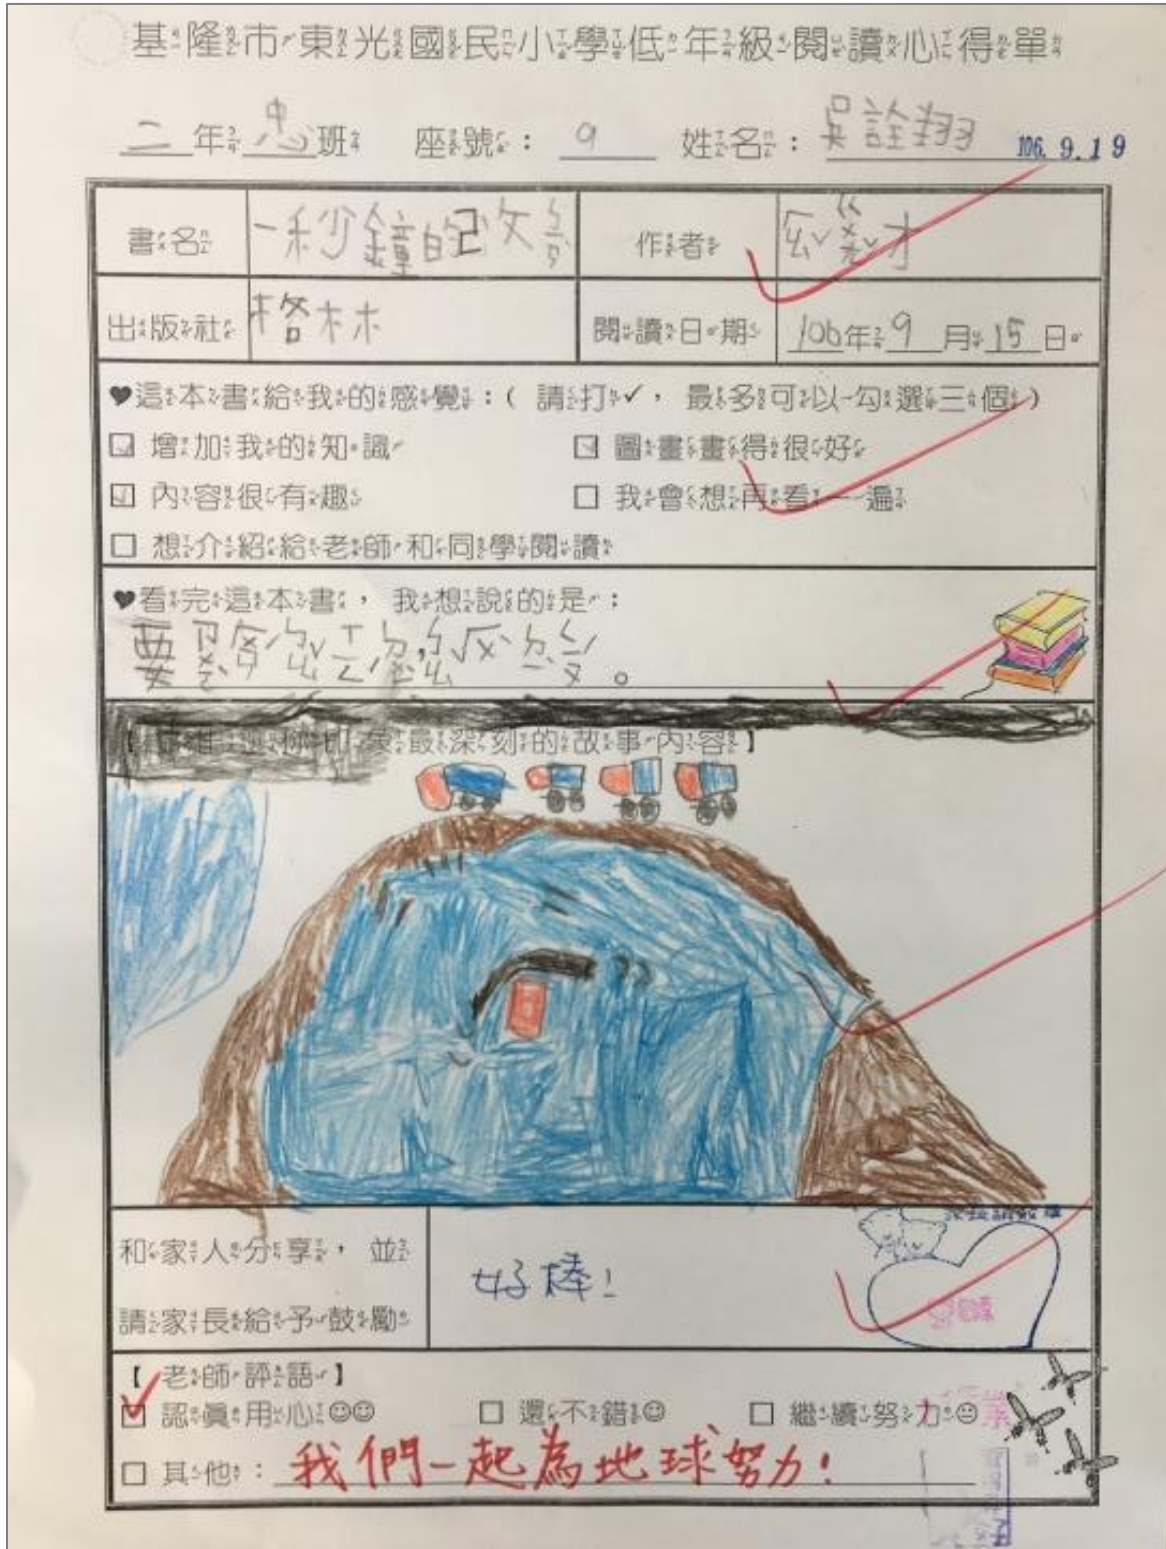 基隆市東光國民小學低年級閱讀心得單
二年忠班 座號:9 姓名:吳詮翔 106.9.19
書名 一秒鐘的改 作者 才
出版社 格林 閱讀日期 106年9月15日
♥這本書給我的感覺:(請打✓,最多可以勾選三個)
☑ 增加我的知識 ☑ 圖畫畫得很好
☑ 內容很有趣 □ 我會想再看一遍
□ 想介紹給老師和同學閱讀
♥看完這本書,我想說的是:
要
最深刻的故事內容】
和家人分享,並
請家長給予鼓勵
好棒!
【 老師評語 】
☑ 認真用心☺☺ □ 還不錯☺ □ 繼續努力😐
□ 其他:我們一起為地球努力!